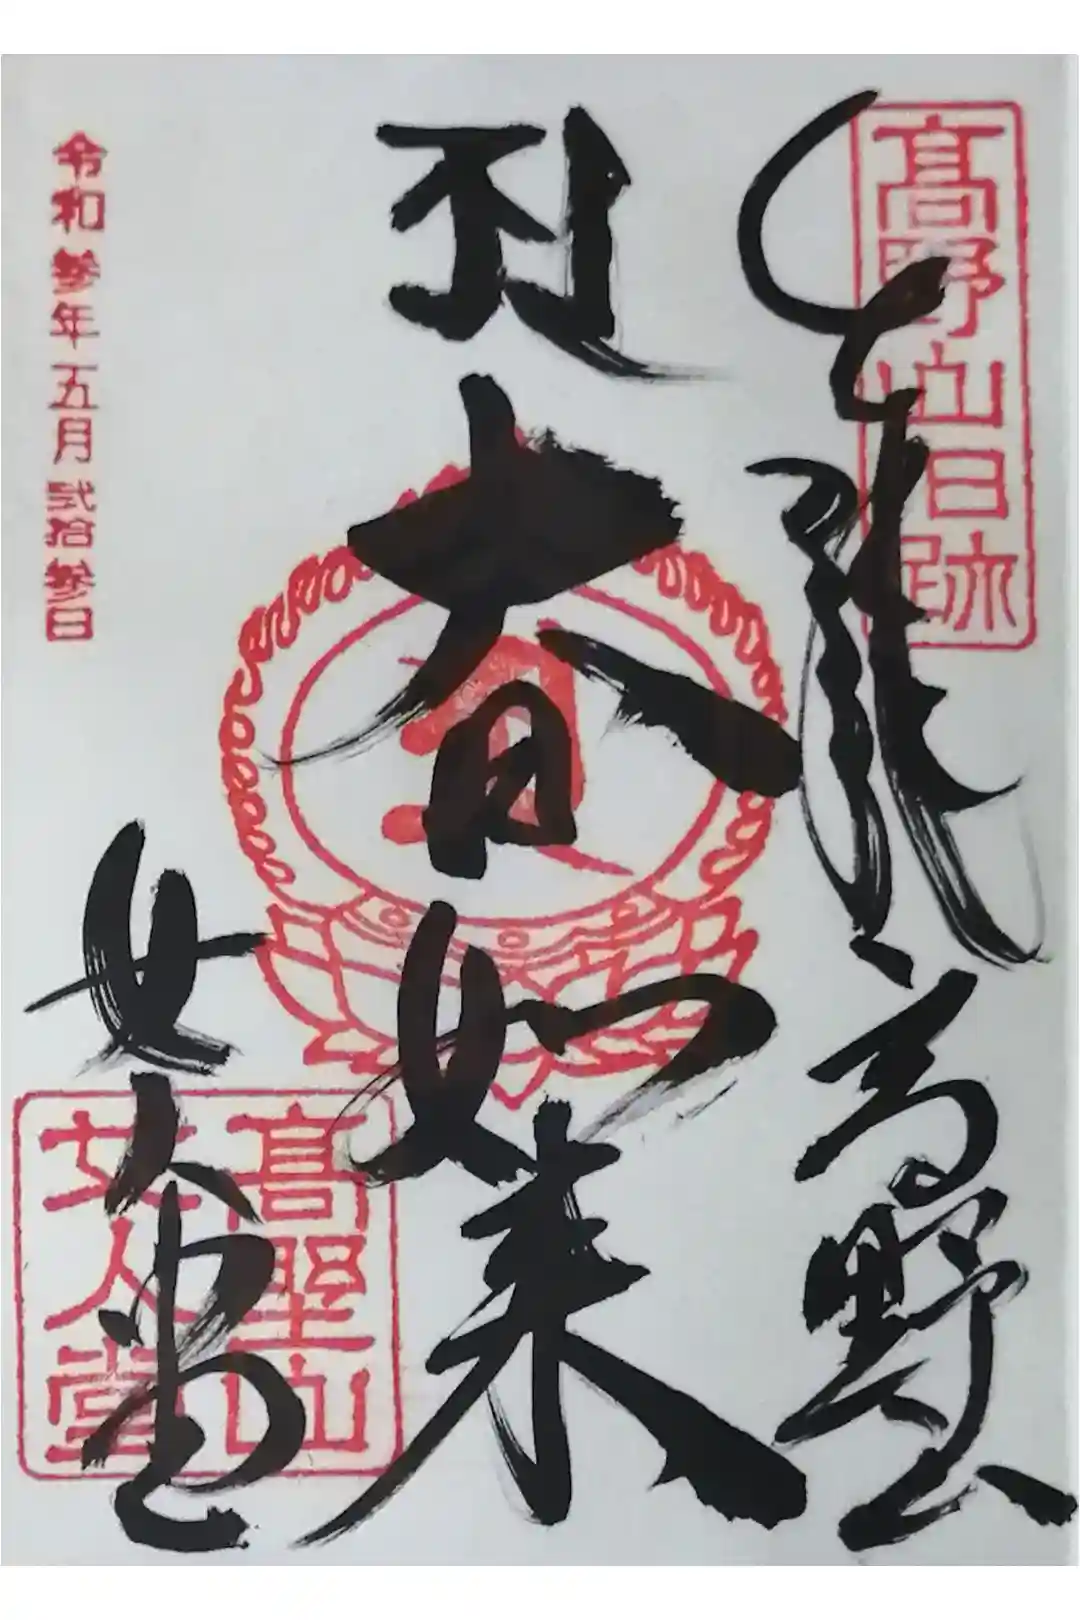 髙野山旧跡
奉拝
高野山
大日如来
女人堂
髙埜山
女人堂
令和参年五月弐拾参日